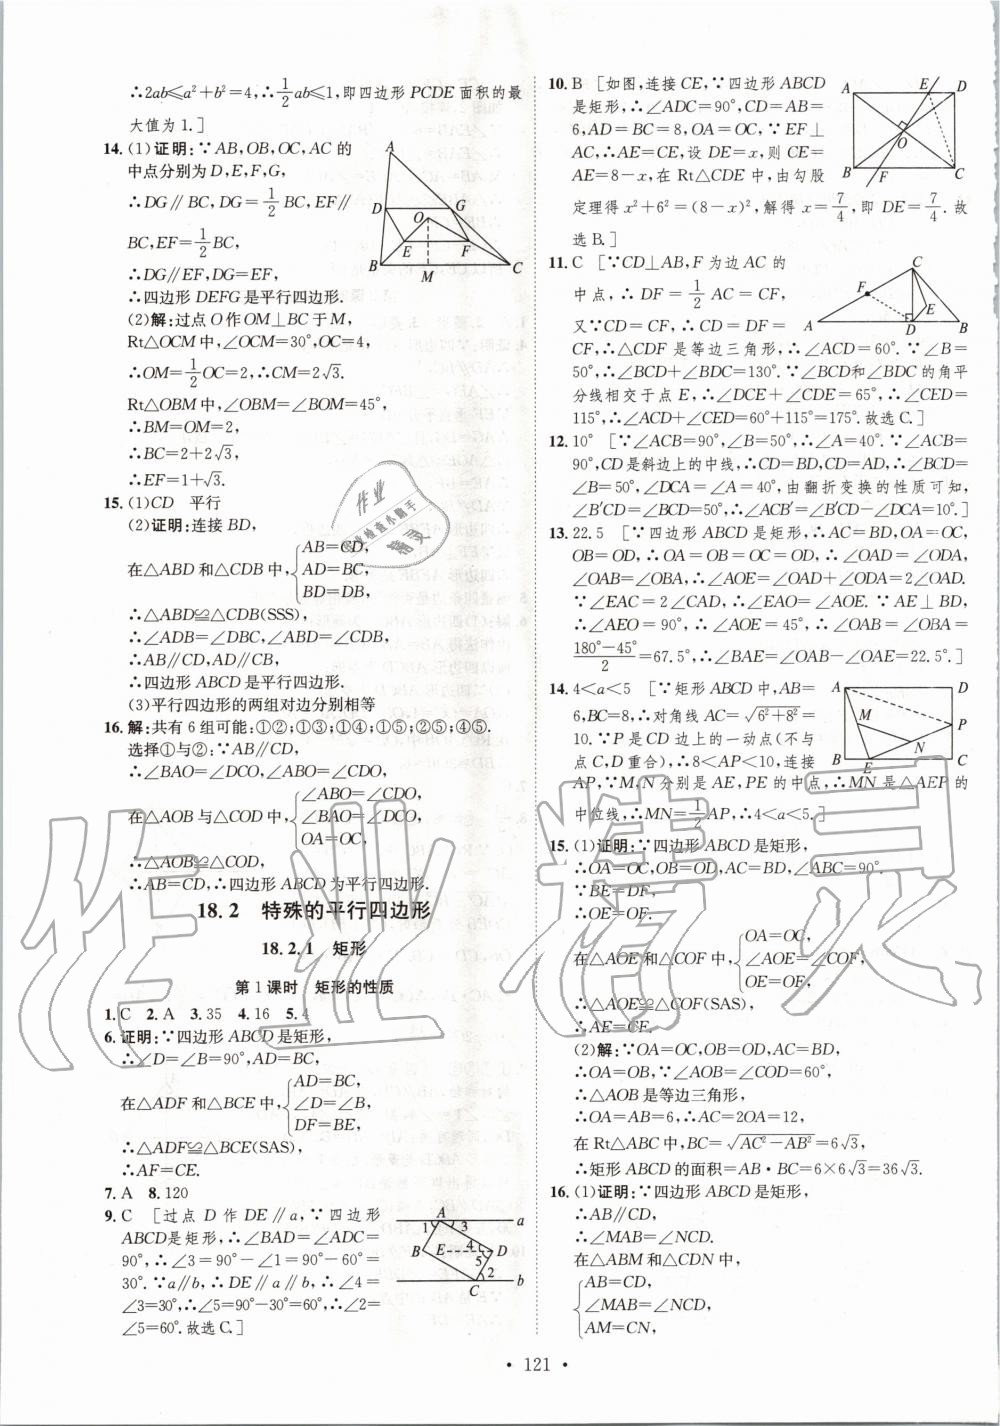 ∴2ab≤a²+b²=4,∴1/2ab≤1,即四边形 PCDE 面积的最
大值为1.]
14.(1)证明:∵AB,OB,OC,AC 的
中点分别为 D,E,F,G,
∴DG∥BC,DG=1/2BC,EF∥
BC,EF=1/2BC,
∴DG∥EF,DG=EF,
∴四边形 DEFG 是平行四边形.
(2)解:过点 O 作 OM⊥BC 于 M,
Rt△OCM 中,∠OCM=30°,OC=4,
∴OM=1/2OC=2,∴CM=2√3.
Rt△OBM 中,∠OBM=∠BOM=45°,
∴BM=OM=2,
∴BC=2+2√3,
∴EF=1+√3.
15.(1)CD 平行
(2)证明:连接 BD,
在△ABD 和△CDB 中,{AB=CD,
AD=BC,
BD=DB,
∴△ABD≌△CDB(SSS),
∴∠ADB=∠DBC,∠ABD=∠CDB,
∴AB∥CD,AD∥CB,
∴四边形 ABCD 是平行四边形.
(3)平行四边形的两组对边分别相等
16.解:共有 6 组可能:①②;①③;①④;①⑤;②⑤;④⑤.
选择①与②:∵AB∥CD,
∴∠BAO=∠DCO,∠ABO=∠CDO,
在△AOB 与△COD 中,{∠ABO=∠CDO,
∠BAO=∠DCO,
OA=OC,
∴△AOB≌△COD,
∴AB=CD,∴四边形 ABCD 为平行四边形.
18.2 特殊的平行四边形
18.2.1 矩形
第1课时 矩形的性质
1.C 2.A 3.35 4.16 5.4
6.证明:∵四边形 ABCD 是矩形,
∴∠D=∠B=90°,AD=BC,
在△ADF 和△BCE 中,{AD=BC,
∠D=∠B,
DF=BE,
∴△ADF≌△BCE(SAS),
∴AF=CE.
7.A 8.120
9.C [过点 D 作 DE∥a,∵四边形
ABCD是矩形,∴∠BAD=∠ADC=
90°,∴∠3=90°-∠1=90°-60°=
30°.∵a∥b,∴DE∥a∥b,∴∠4=
∠3=30°,∴∠5=90°-30°=60°,∴∠2
=∠5=60°.故选C.]
10.B [如图,连接 CE,∵四边形 ABCD
是矩形,∴∠ADC=90°,CD=AB=
6,AD=BC=8,OA=OC,∵EF⊥
AC,∴AE=CE,设 DE=x,则 CE=
AE=8-x,在 Rt△CDE 中,由勾股
定理得 x²+6²=(8-x)²,解得 x=7/4,即 DE=7/4.故
选 B.]
11.C [∵CD⊥AB,F 为边 AC 的
中点,∴DF=1/2AC=CF,
又∵CD=CF,∴CD=DF=
CF,∴△CDF 是等边三角形,∴∠ACD=60°.∵∠B=
50°,∴∠BCD+∠BDC=130°.∵∠BCD和∠BDC 的角平
分线相交于点 E,∴∠DCE+∠CDE=65°,∴∠CED=
115°,∴∠ACD+∠CED=60°+115°=175°.故选C.]
12.10° [∵∠ACB=90°,∠B=50°,∴∠A=40°.∵∠ACB=
90°,CD是斜边上的中线,∴CD=BD,CD=AD,∴∠BCD
=∠B=50°,∠DCA=∠A=40°,由翻折变换的性质可知,
∠B′CD=∠BCD=50°,∴∠ACB′=∠B′CD-∠DCA=10°.]
13.22.5 [∵四边形 ABCD 是矩形,∴AC=BD,OA=OC,
OB=OD,∴OA=OB=OC=OD,∴∠OAD=∠ODA,
∠OAB=∠OBA,∴∠AOE=∠OAD+∠ODA=2∠OAD.
∵∠EAC=2∠CAD,∴∠EAO=∠AOE.∵AE⊥BD,
∴∠AEO=90°,∴∠AOE=45°,∴∠OAB=∠OBA=
180°-45°/2=67.5°,∴∠BAE=∠OAB-∠OAE=22.5°.]
14.4<a<5 [∵矩形 ABCD 中,AB=
6,BC=8,∴对角线 AC=√6²+8²=
10.∵P 是 CD 边上的一动点(不与
点 C,D 重合),∴8<AP<10,连接
AP,∵M,N 分别是 AE,PE 的中点,∴MN 是△AEP 的
中位线,∴MN=1/2AP,∴4<a<5.]
15.(1)证明:∵四边形 ABCD 是矩形,
∴OA=OC,OB=OD,AC=BD,∠ABC=90°.
∵BE=DF,
∴OE=OF.
在△AOE 和△COF 中,{OA=OC,
∠AOE=∠COF,
OE=OF,
∴△AOE≌△COF(SAS),
∴AE=CF.
(2)解:∵OA=OC,OB=OD,AC=BD,
∴OA=OB,∵∠AOB=∠COD=60°,
∴△AOB 是等边三角形,
∴OA=AB=6,∴AC=2OA=12,
在 Rt△ABC 中,BC=√AC²-AB²=6√3,
∴矩形 ABCD 的面积=AB·BC=6×6√3=36√3.
16.(1)证明:∵四边形 ABCD 是矩形,
∴AB∥CD,
∴∠MAB=∠NCD.
在△ABM 和△CDN 中,
{AB=CD,
∠MAB=∠NCD,
AM=CN,
·121·
作业精灵